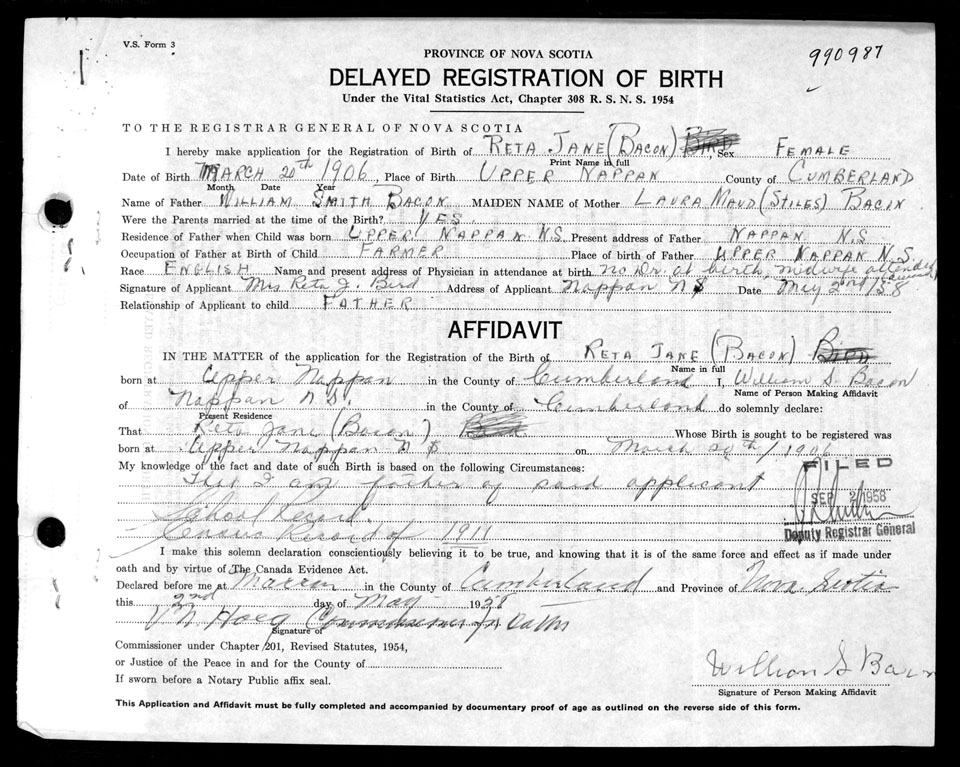 V.S. Form 3
990987
PROVINCE OF NOVA SCOTIA
DELAYED REGISTRATION OF BIRTH
Under the Vital Statistics Act, Chapter 308 R. S. N. S. 1954
TO THE REGISTRAR GENERAL OF NOVA SCOTIA
I hereby make application for the Registration of Birth of RETA JANE (BACON) BIRD, Sex FEMALE
Print Name in full
Date of Birth MARCH 20th 1906, Place of Birth UPPER NAPPAN County of CUMBERLAND
Month Date Year
Name of Father WILLIAM SMITH BACON MAIDEN NAME of Mother LAURA MAUD (STILES) BACON
Were the Parents married at the time of Birth? YES.
Residence of Father when Child was born UPPER NAPPAN N.S. Present address of Father NAPPAN N.S
Occupation of Father at Birth of Child FARMER Place of birth of Father UPPER NAPPAN N.S
Race ENGLISH Name and present address of Physician in attendance at birth no Dr. at birth, midwife attended
Signature of Applicant Mrs Reta J. Bird Address of Applicant Nappan N S Date May 2nd/58
Relationship of Applicant to child FATHER
AFFIDAVIT
IN THE MATTER of the application for the Registration of the Birth of RETA JANE (BACON) BIRD
Name in full
born at Upper Nappan in the County of Cumberland I, William S. Bacon
Name of Person Making Affidavit
of Nappan N S. in the County of Cumberland do solemnly declare:
Present Residence
That Reta Jane (Bacon), Bird Whose Birth is sought to be registered was
born at Upper Nappan N S on March 20th/1906
My knowledge of the fact and date of such Birth is based on the following Circumstances:
That I am father of said applicant
School Record.
Census Record of 1911
FILED
SEP 2 1958
Deputy Registrar General
I make this solemn declaration conscientiously believing it to be true, and knowing that it is of the same force and effect as if made under
oath and by virtue of The Canada Evidence Act.
Declared before me at in the County of Cumberland and Province of Nova Scotia
this 2nd day of May 1958
Commissioner of Oaths
Signature of
Commissioner under Chapter 201, Revised Statutes, 1954,
or Justice of the Peace in and for the County of
If sworn before a Notary Public affix seal.
William S Bacon
Signature of Person Making Affidavit
This Application and Affidavit must be fully completed and accompanied by documentary proof of age as outlined on the reverse side of this form.